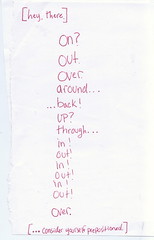 [hey, there]
on?
out.
over.
around...
...back!
up?
through...
in!
out!
in!
out!
in!
out!
over.
[... consider yourself prepositioned.]